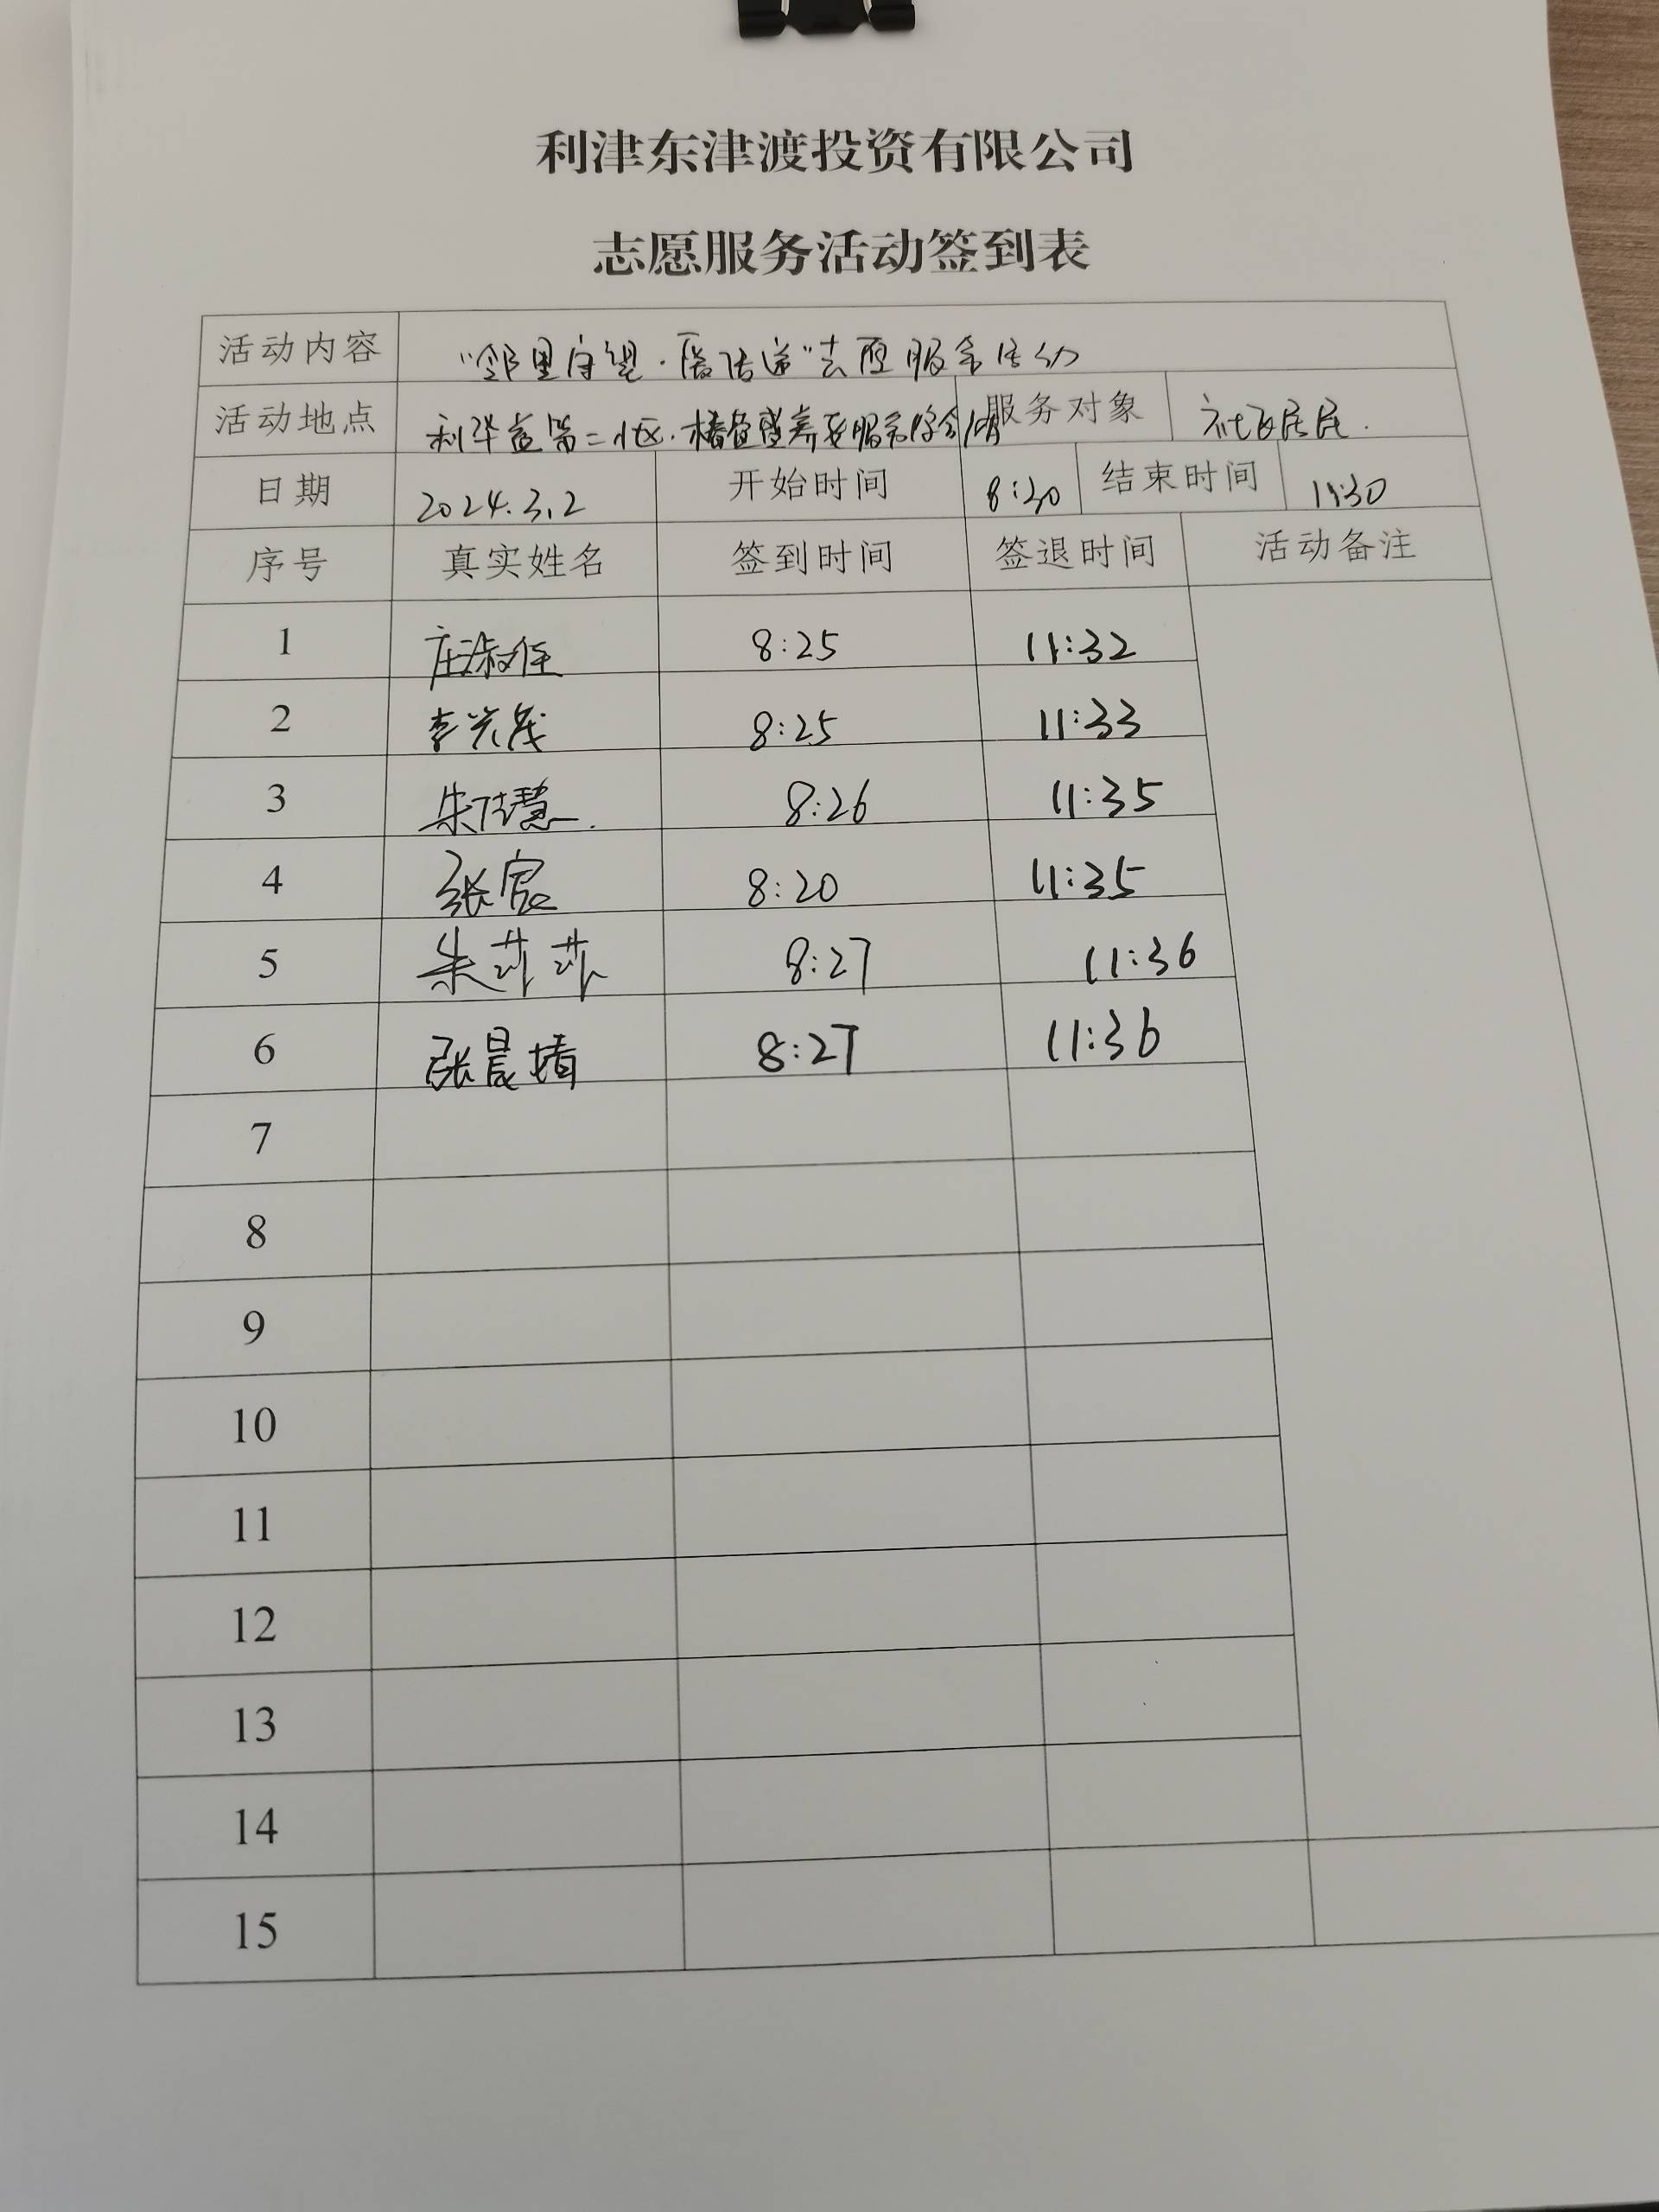 利津东津渡投资有限公司
志愿服务活动签到表
活动内容 “邻里守望·暖传递”志愿服务活动
活动地点 利华益第二小区· 服务对象 社区居民.
日期 2024.3.2 开始时间 8:30 结束时间 11:30
序号 真实姓名 签到时间 签退时间 活动备注
1 8:25 11:32
2 李兴茂 8:25 11:33
3 8:26 11:35
4 张宸 8:20 11:35
5 朱莎莎 8:27 11:36
6 张晨婧 8:27 11:36
7
8
9
10
11
12
13
14
15